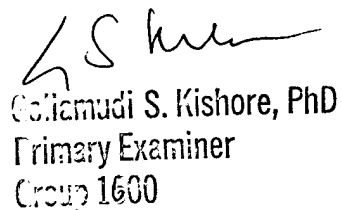 Gollamudi S. Kishore, PhD
Primary Examiner
Group 1600